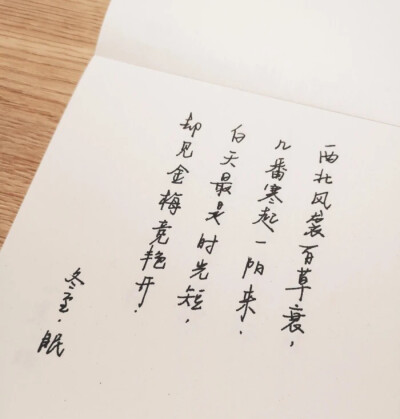 西北风袭百草衰，
几番寒起一阳来，
白天最是时光短，
却见金梅竞艳开！
冬至·眠